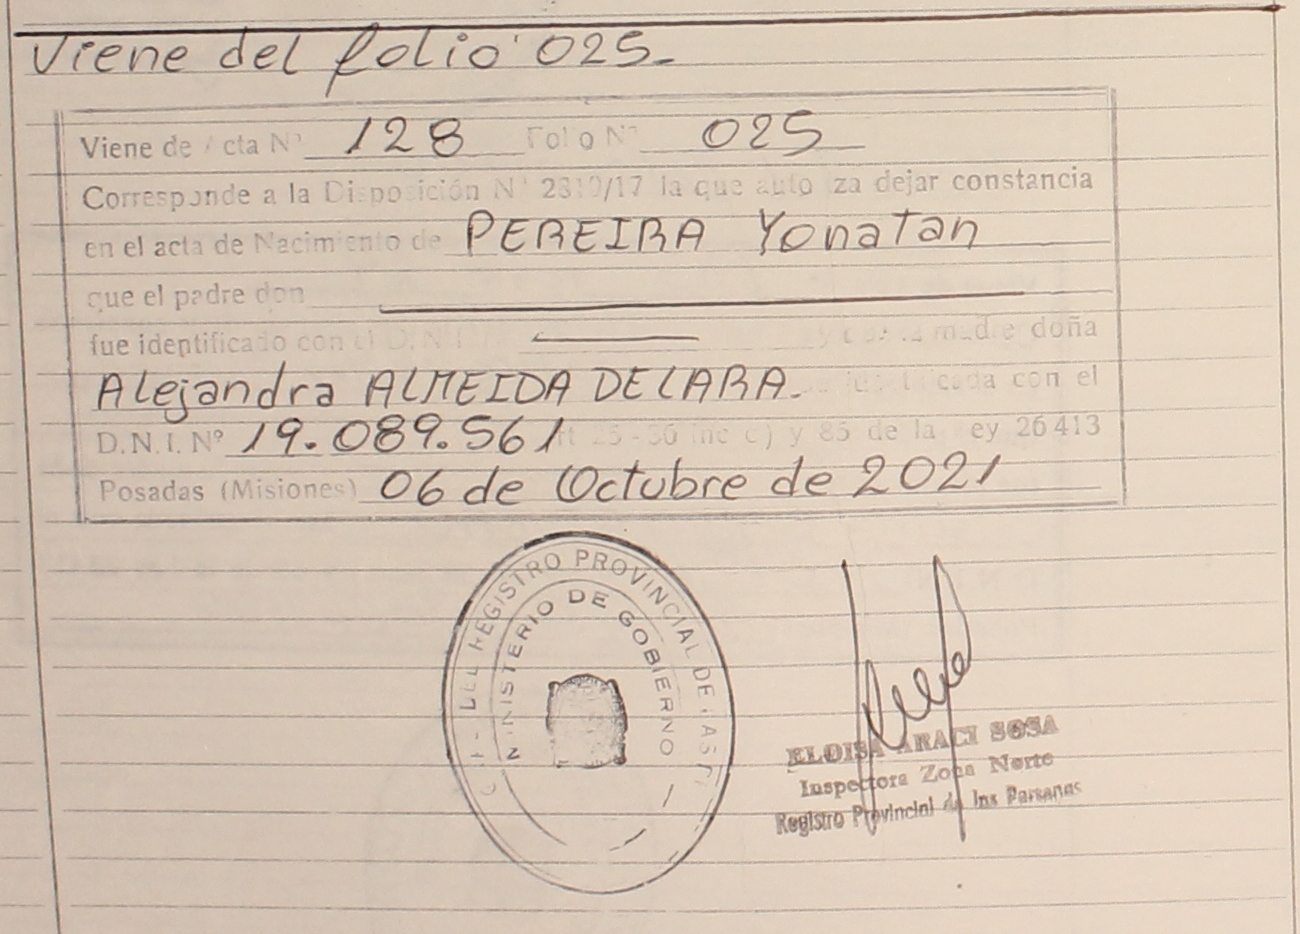 Viene del folio 025-
Viene de Acta Nº 128 Folio Nº 025
Corresponde a la Disposición Nº 2810/17 la que autoriza dejar constancia
en el acta de Nacimiento de PEREIRA Yonatan
que el padre don
fue identificado con el D.N.I. y que la madre doña
Alejandra ALMEIDA DE LARA. cada con el
D.N.I. Nº 19.089.561 25-36 inc c) y 85 de la Ley 26413
Posadas (Misiones) 06 de Octubre de 2021
DEL REGISTRO PROVINCIAL DE LAS
MINISTERIO DE GOBIERNO
ELOISA ARACI SOSA
Inspectora Zona Norte
Registro Provincial de las Personas